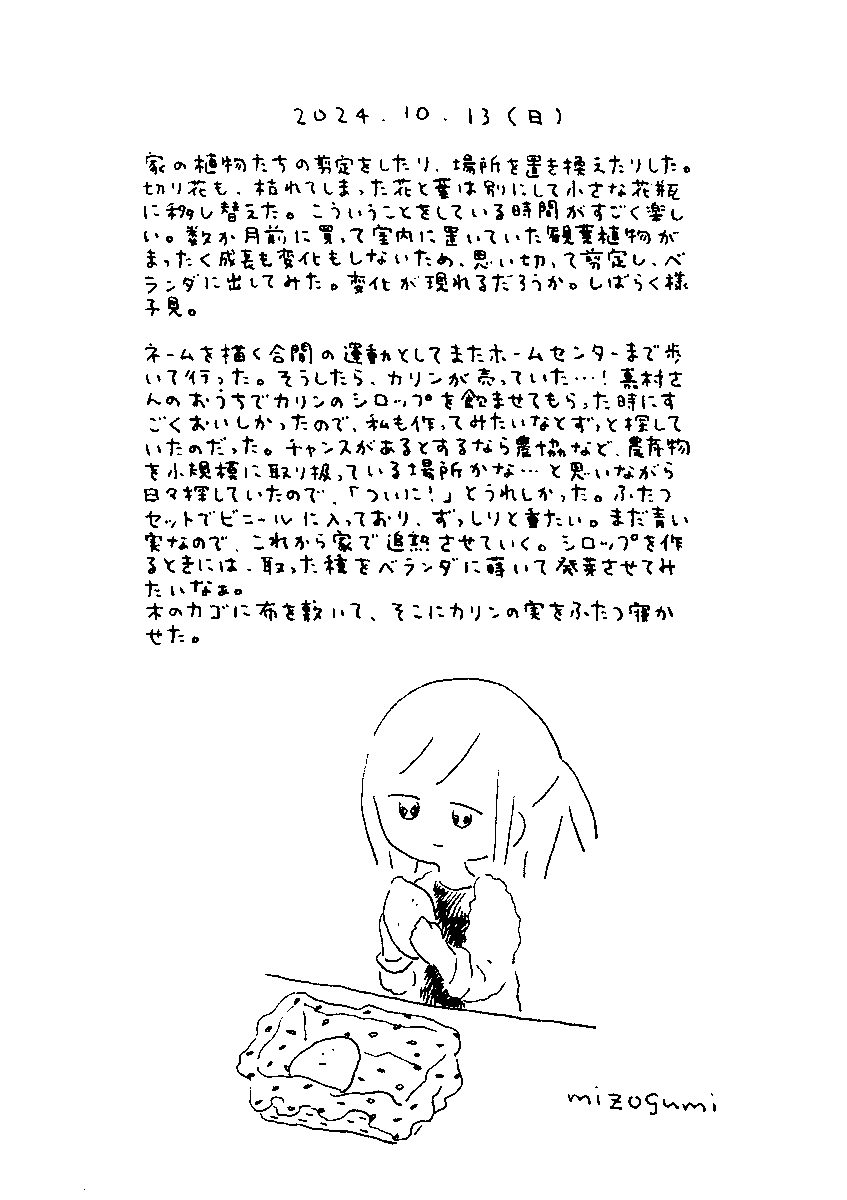 2024.10.13(日)
家の植物たちの剪定をしたり、場所を置き換えたりした。
切り花も、枯れてしまった花と葉は別にして小さな花瓶
に移し替えた。こういうことをしている時間がすごく楽し
い。数か月前に買って室内に置いていた観葉植物が
まったく成長も変化もしないため、思い切って剪定し、ベ
ランダに出してみた。変化が現れるだろうか。しばらく様
子見。
ネームを描く合間の運動としてまたホームセンターまで歩
いて行った。そうしたら、カリンが売っていた…!眞村さ
んのおうちでカリンのシロップを飲ませてもらった時にす
ごくおいしかったので、私も作ってみたいなとずっと探して
いたのだった。チャンスがあるとするなら農協など、農産物
を小規模に取り扱っている場所かな…と思いながら
日々探していたので、「ついに!」とうれしかった。ふたつ
セットでビニールに入っており、ずっしりと重たい。まだ青い
実なので、これから家で追熟させていく。シロップを作
るときには、取った種をベランダに蒔いて発芽させてみ
たいなぁ。
木のカゴに布を敷いて、そこにカリンの実をふたつ寝か
せた。
mizogumi